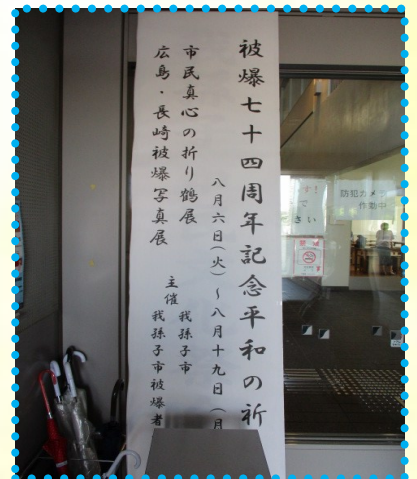 被爆七十四周年記念平和の祈
八月六日(火)～八月十九日(月
市民真心の折り鶴展
広島・長崎被爆写真展
主催 我孫子市
我孫子市被爆者
防犯カメラ
作動中